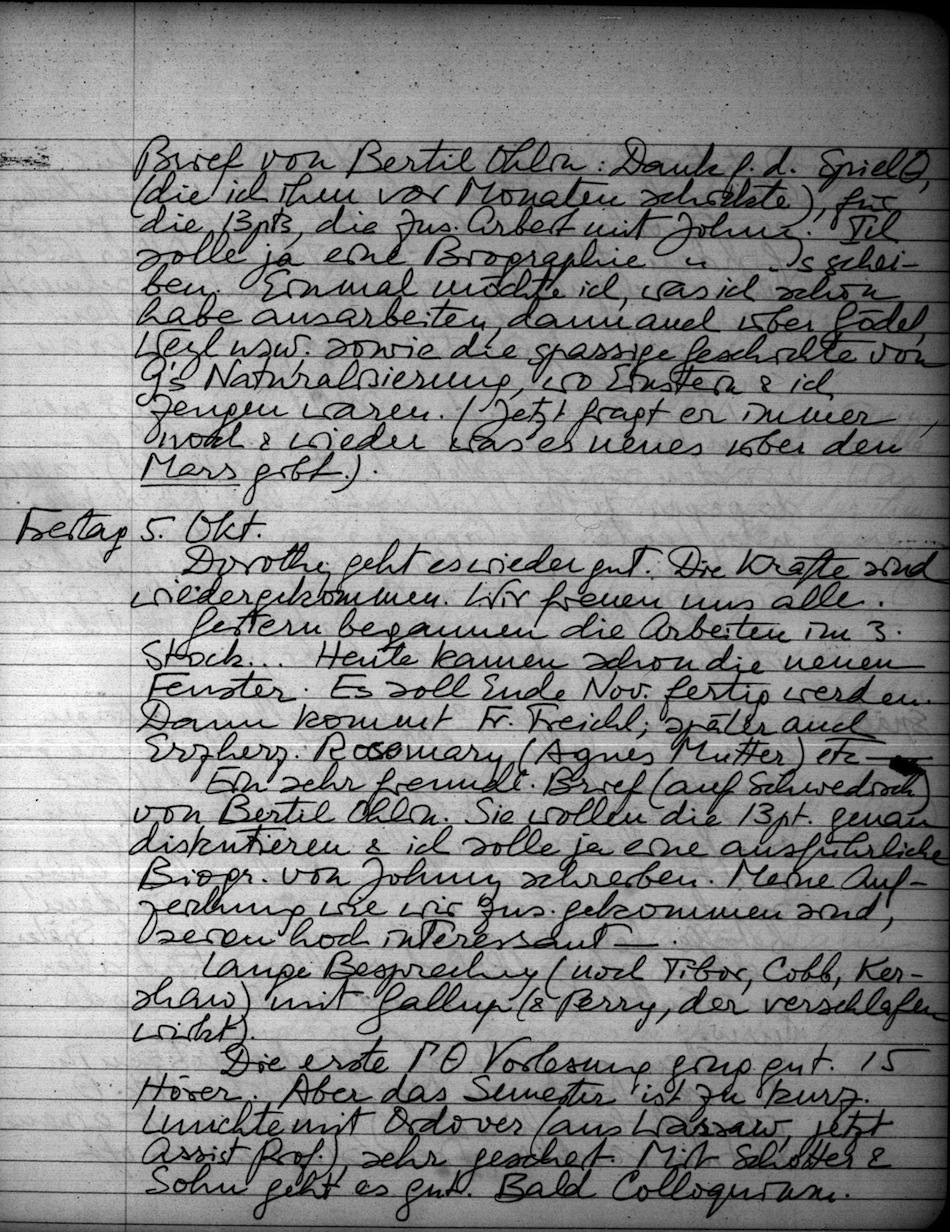 Brief von Bertil Ohlin: Dank f. d. SpielΘ,
(die ich ihm vor Monaten schickte), für
die 13pts, die zus. Arbeit mit Johnny. Ich
solle ja eine Biographie " " 's schrei-
ben. Einmal möchte ich, was ich schon
habe ausarbeiten, dann auch über Gödel,
Weyl usw. sowie die spassige Geschichte von
G's Naturalisierung, wo Einstein & ich
Zeugen waren. (Jetzt fragt er immer
& wieder was es neues über den
Mars gibt.).
Freitag 5. Okt.
Dorothy geht es wieder gut. Die Kräfte sind
wiedergekommen. Wir freuen uns alle.
Gestern begannen die Arbeiten im 3.
Stock... Heute kamen schon die neuen
Fenster. Es soll Ende Nov. fertig werden.
Dann kommt Fr. Freichl; später auch
Erzherz. Rosemary (Agnes Mutter) etc —
Ein sehr freundl. Brief (auf Schwedisch)
von Bertil Ohlin. Sie wollen die 13pt. genau
diskutieren & ich solle ja eine ausführliche
Biogr. von Johnny schreiben. Meine Auf-
zeichnung wie wir zus. gekommen sind,
seien hoch interessant —.
Lange Besprechung (noch Tibor, Cobb, Ker-
shaw) mit Gallup (& Perry, der verschlafen
wirkt).
Die erste ΓΘ Vorlesung ging gut. 15
Hörer. Aber das Semester ist zu kurz.
Lunchte mit Ordover (aus Warsaw, jetzt
Assist Prof.), sehr gescheit. Mit Schotter &
Sohn geht es gut. Bald Colloquium.